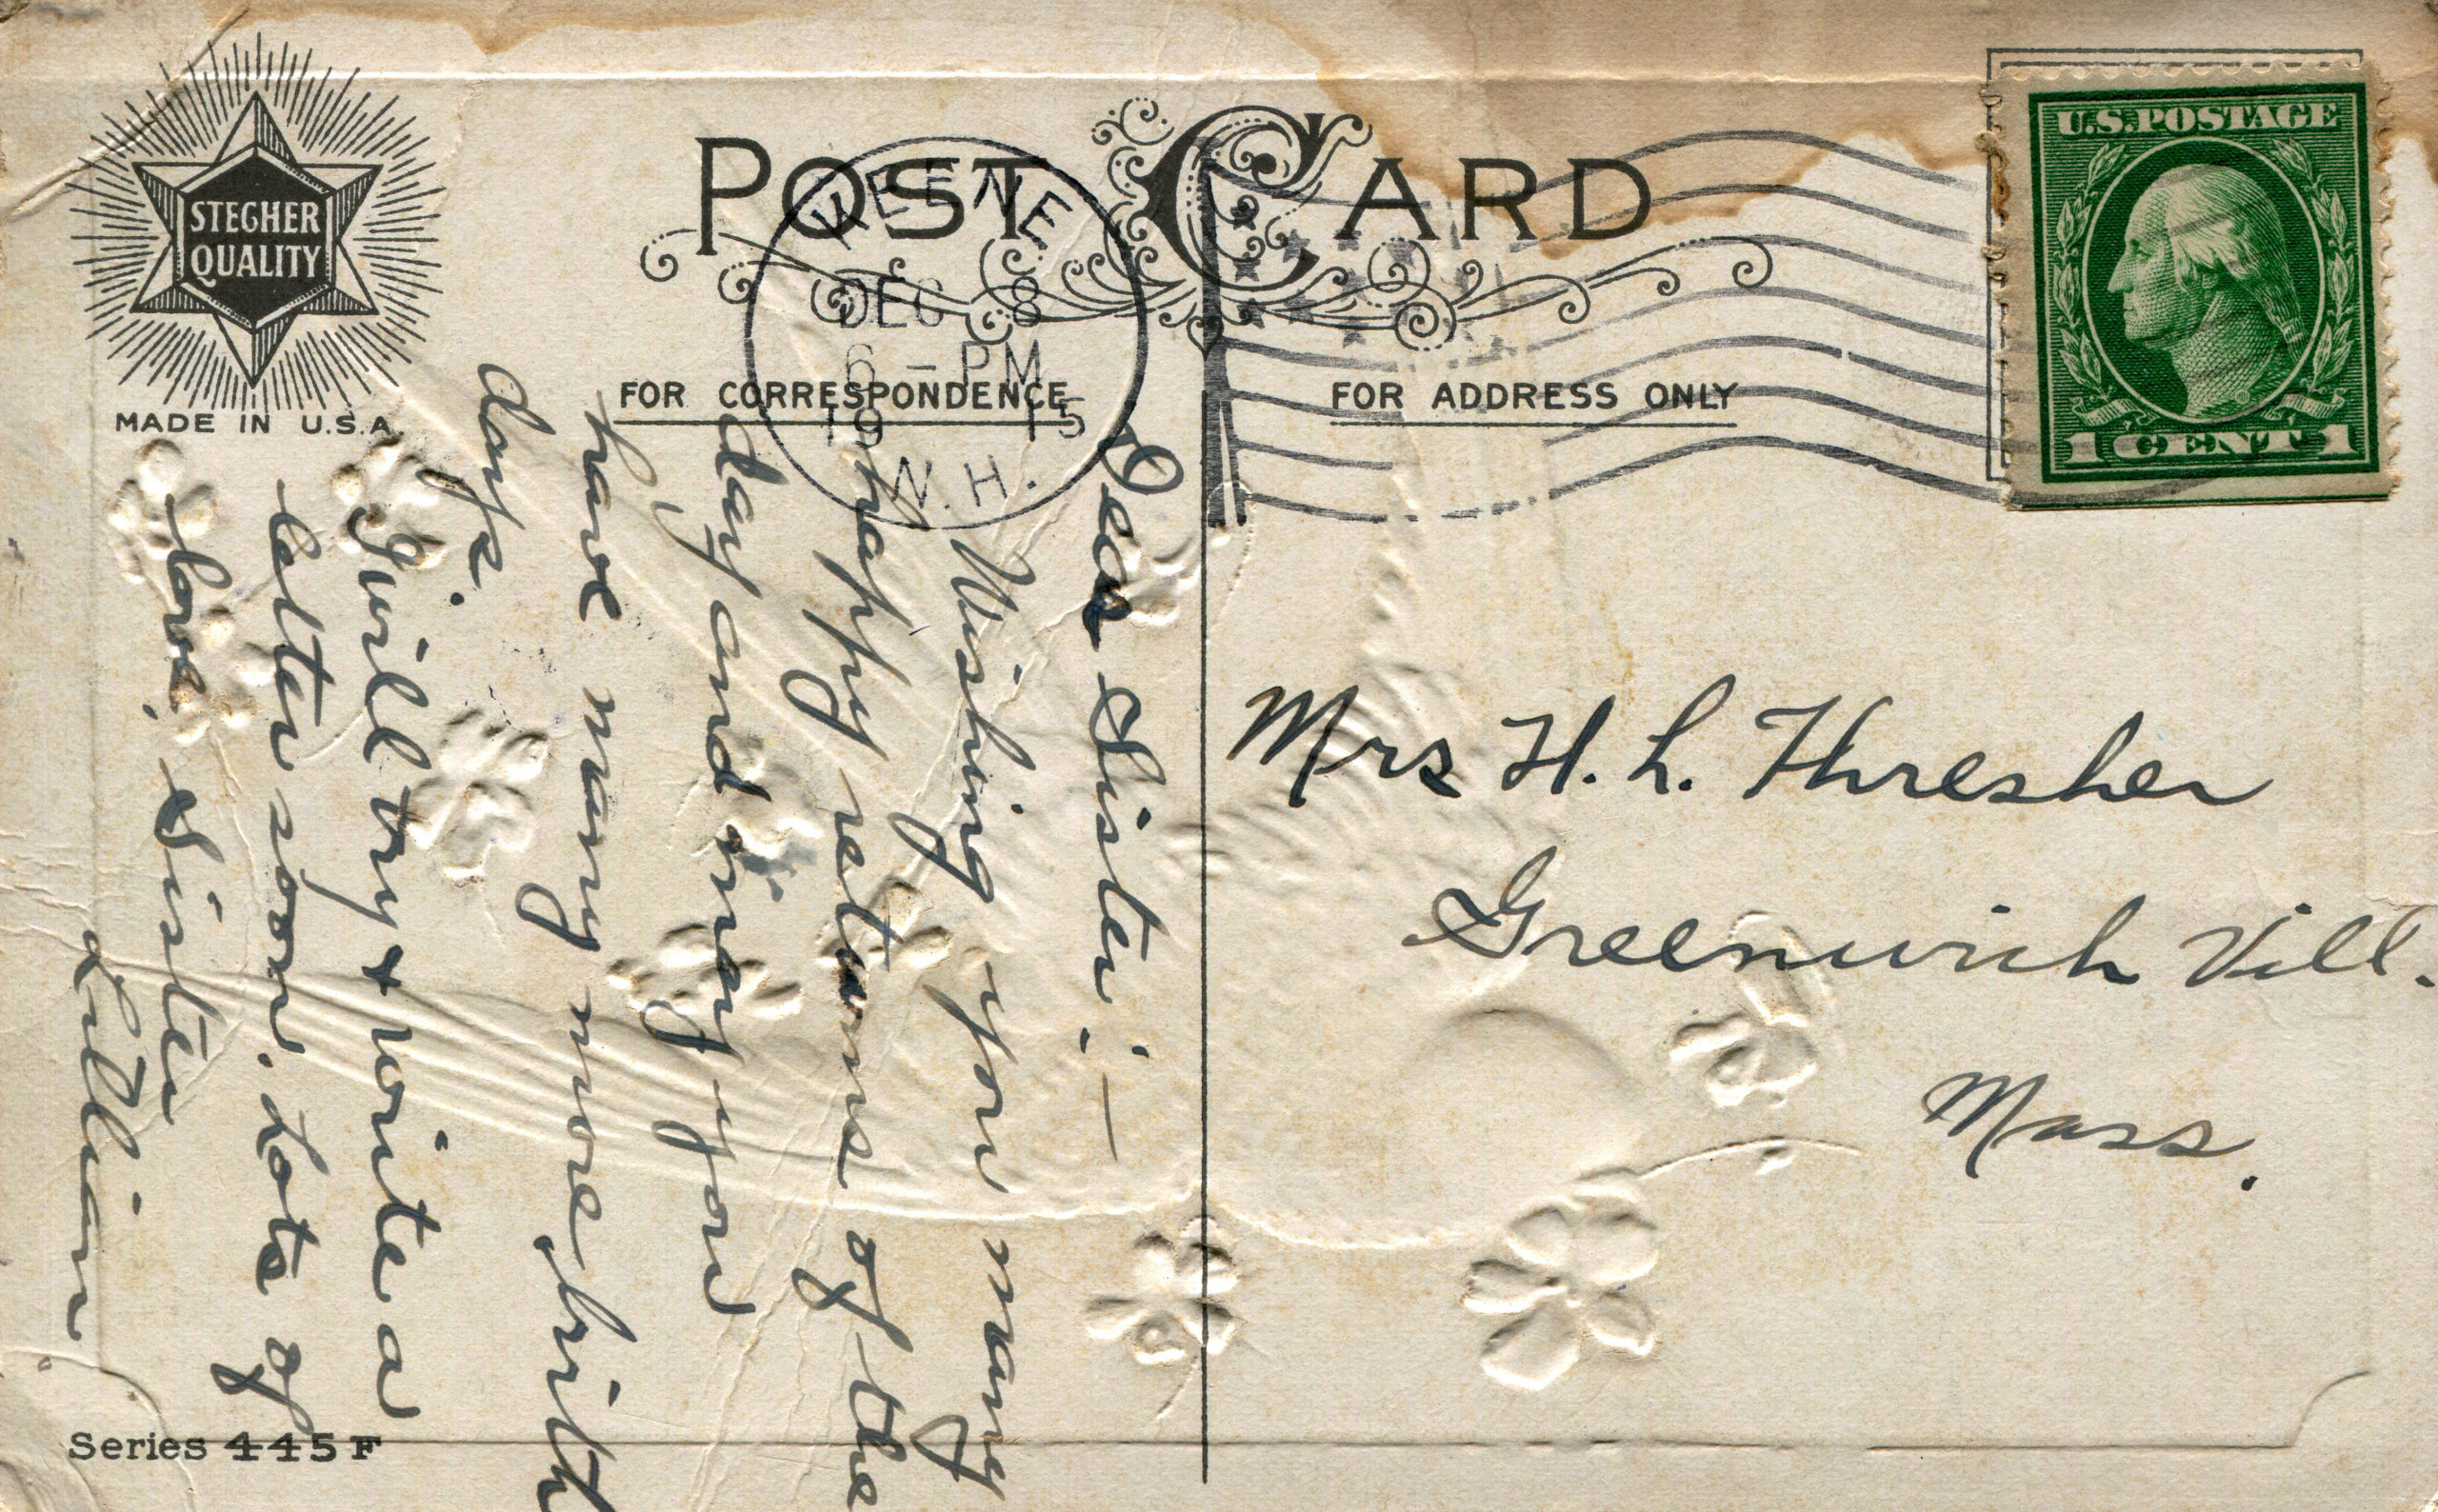 STEGHER
QUALITY
MADE IN U.S.A.
POST CARD
KEENE
DEC 8
6 - PM
19 15
N.H.
FOR CORRESPONDENCE
FOR ADDRESS ONLY
U.S. POSTAGE
1 CENT 1
Dear Sister:—
Wishing you many
happy returns of the
day and may you
have many more birth
days.
I will try & write a
letter soon. Lots of
love, Sister
Lillian.
Mrs H. L. Thresher
Greenwich Vill.
Mass.
Series 445 F